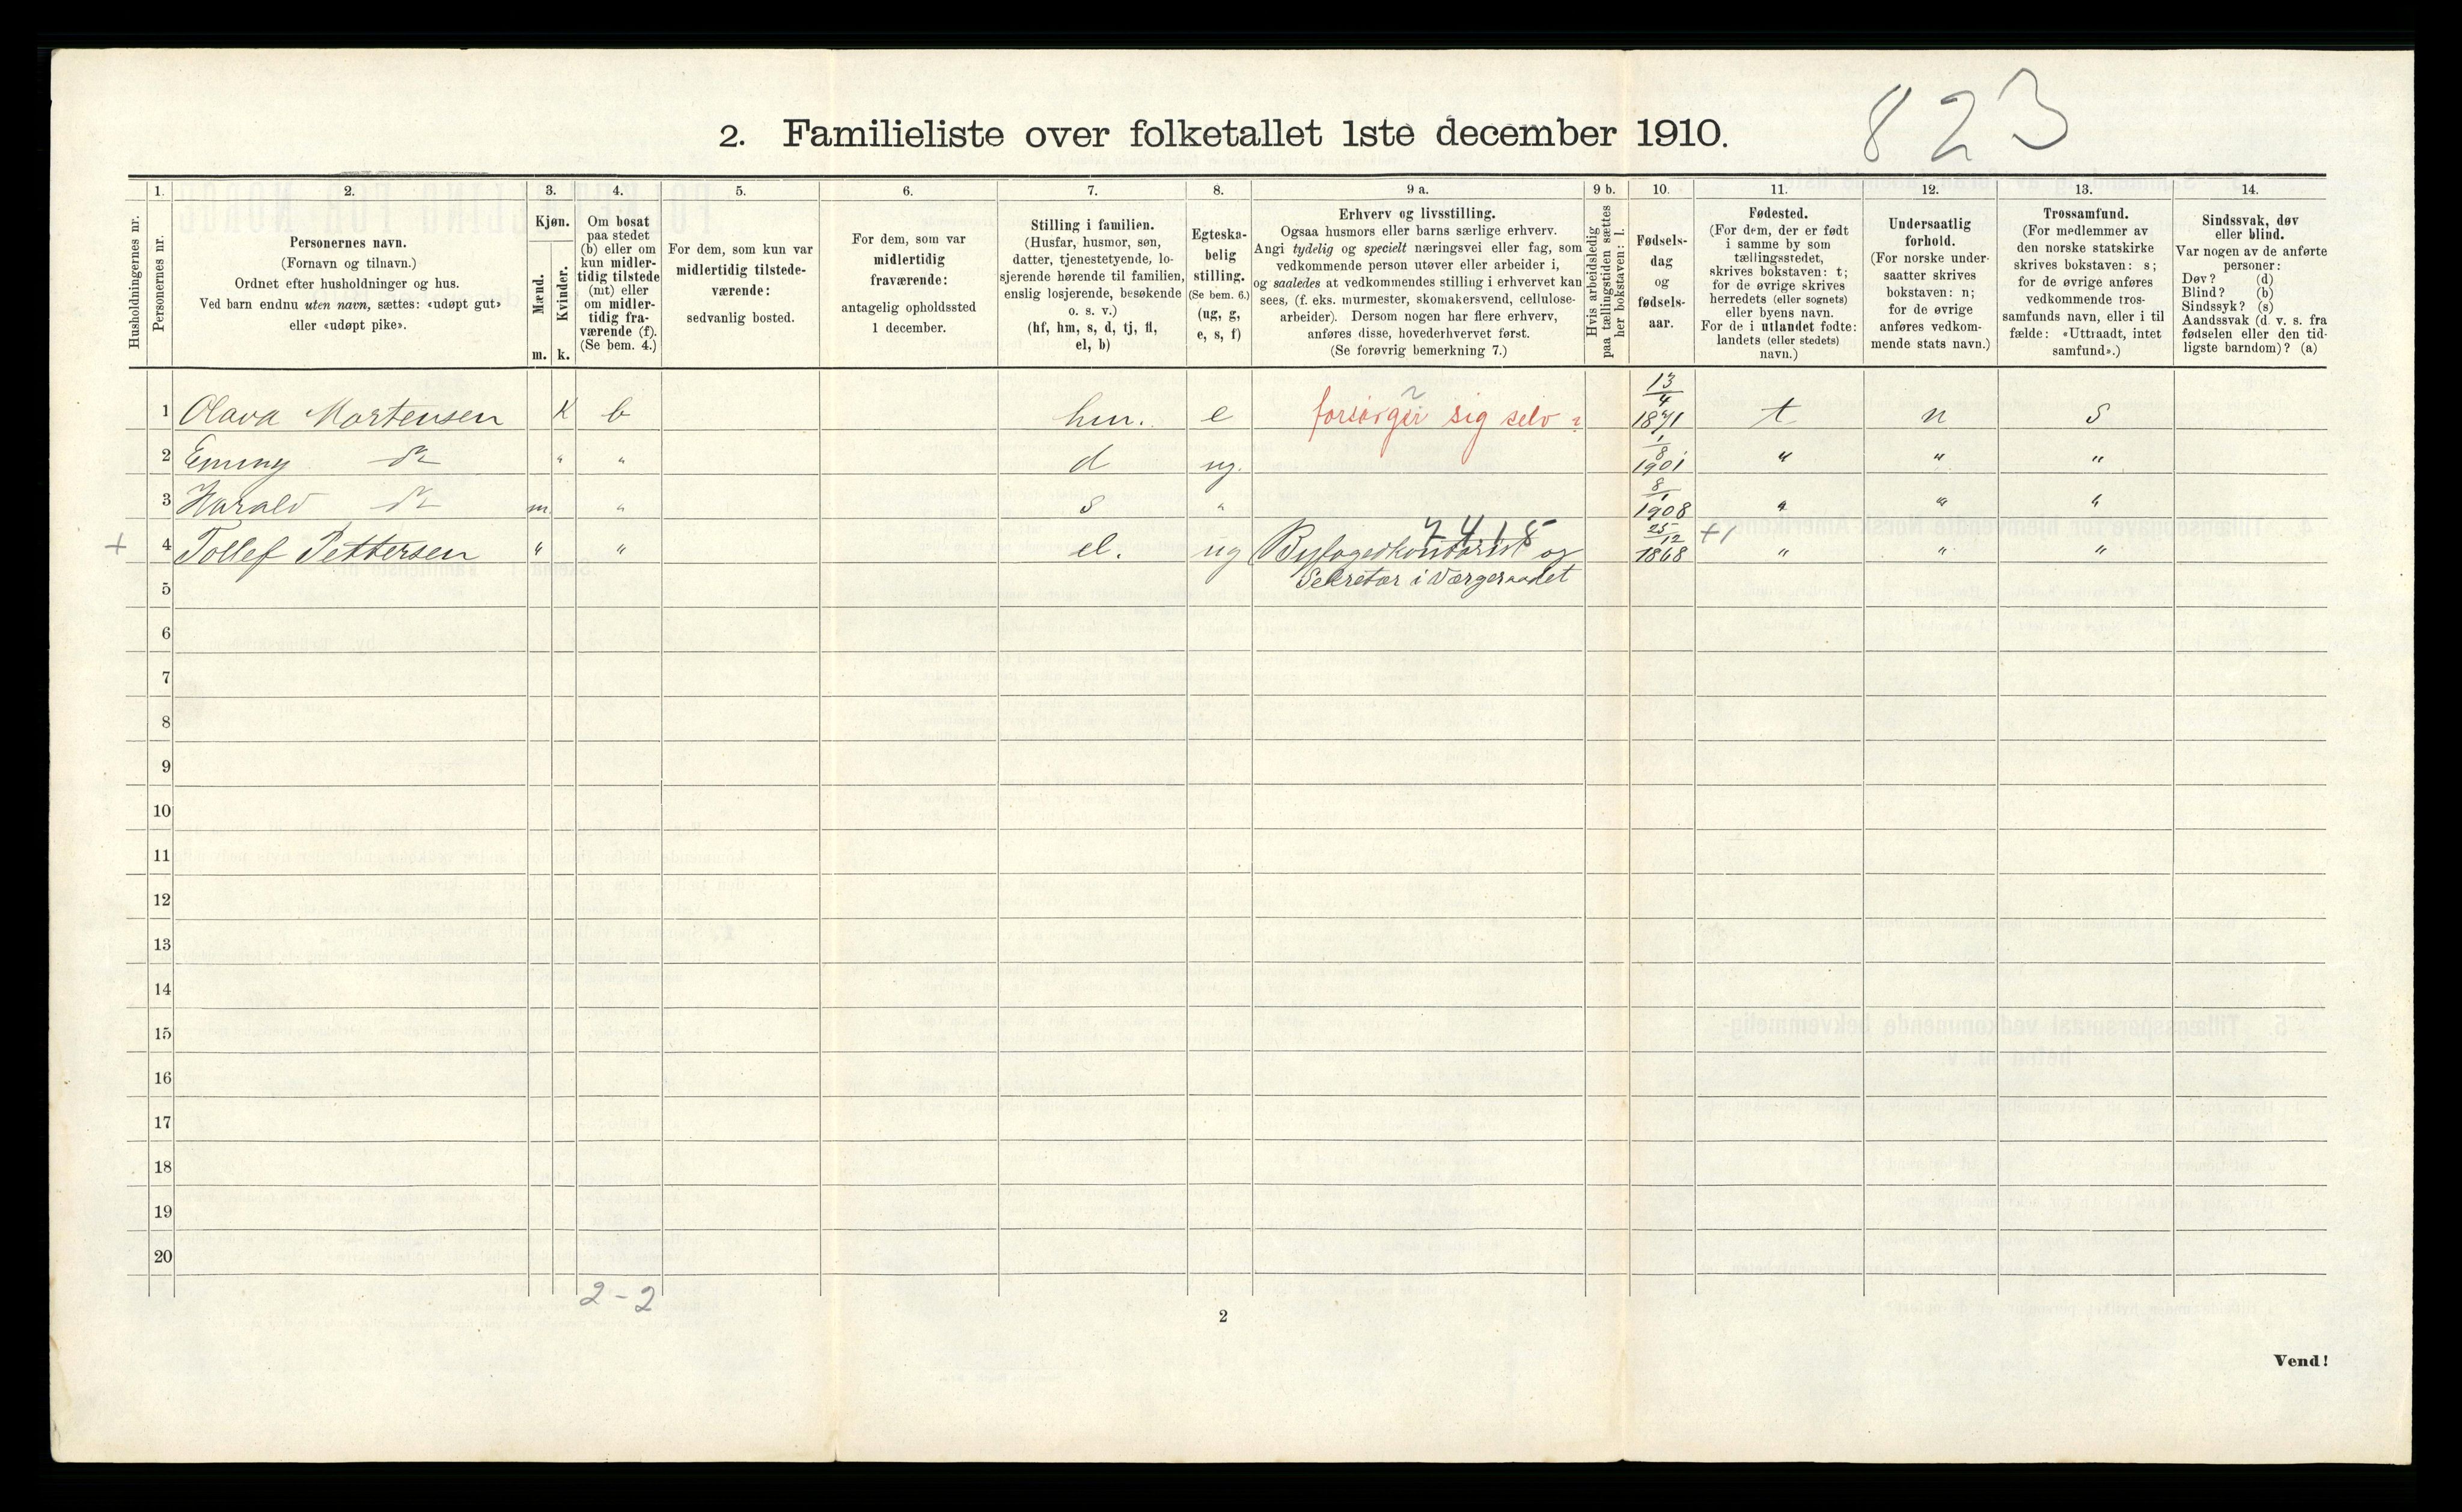 823
2. Familieliste over folketallet 1ste december 1910.
1. 2. 3. 4. 5. 6. 7. 8. 9 a. 9 b. 10. 11. 12. 13. 14.
Husholdningernes nr.
Personernes nr.
Personernes navn.
(Fornavn og tilnavn.)
Ordnet efter husholdninger og hus.
Ved barn endnu uten navn, sættes: «udøpt gut»
eller «udøpt pike».
Kjøn.
Mænd.
Kvinder.
m. k.
Om bosat
paa stedet
(b) eller om
kun midler-
tidig tilstede
(mt) eller
om midler-
tidig fra-
værende (f).
(Se bem. 4.)
For dem, som kun var
midlertidig tilstede-
værende:
sedvanlig bosted.
For dem, som var
midlertidig
fraværende:
antagelig opholdssted
1 december.
Stilling i familien.
(Husfar, husmor, søn,
datter, tjenestetyende, lo-
sjerende hørende til familien,
enslig losjerende, besøkende
o. s. v.)
(hf, hm, s, d, tj, fl,
el, b)
Egteska-
belig
stilling.
(Se bem. 6.)
(ug, g,
e, s, f)
Erhverv og livsstilling.
Ogsaa husmors eller barns særlige erhverv.
Angi tydelig og specielt næringsvei eller fag, som
vedkommende person utøver eller arbeider i,
og saaledes at vedkommendes stilling i erhvervet kan
sees, (f. eks. murmester, skomakersvend, cellulose-
arbeider). Dersom nogen har flere erhverv,
anføres disse, hovederhvervet først.
(Se forøvrig bemerkning 7.)
Hvis arbeidsledig
paa tællingstiden sættes
her bokstaven: l.
Fødsels-
dag
og
fødsels-
aar.
Fødested.
(For dem, der er født
i samme by som
tællingsstedet,
skrives bokstaven: t;
for de øvrige skrives
herredets (eller sognets)
eller byens navn.
For de i utlandet fødte:
landets (eller stedets)
navn.)
Undersaatlig
forhold.
(For norske under-
saatter skrives
bokstaven: n;
for de øvrige
anføres vedkom-
mende stats navn.)
Trossamfund.
(For medlemmer av
den norske statskirke
skrives bokstaven: s;
for de øvrige anføres
vedkommende tros-
samfunds navn, eller i til
fælde: «Uttraadt, intet
samfund».)
Sindssvak, døv
eller blind.
Var nogen av de anførte
personer:
Døv? (d)
Blind? (b)
Sindssyk? (s)
Aandssvak (d. v. s. fra
fødselen eller den tid-
ligste barndom)? (a)
1 Olava Mortensen K b hm. e forsörger sig selv 13/4 1871 t n S
2 Emmy do " " d ug. 1/8 1901 " " "
3 Harald do m " s " 8/1 1908 " " "
+ 4 Tollef Pettersen " " el. ug Byfogedkontorist og 25/12 1868 +1 " " "
7418
5 Sekretær i Værgeraadet
6
7
8
9
10
11
12
13
14
15
16
17
18
19
20
2-2
2
Vend!